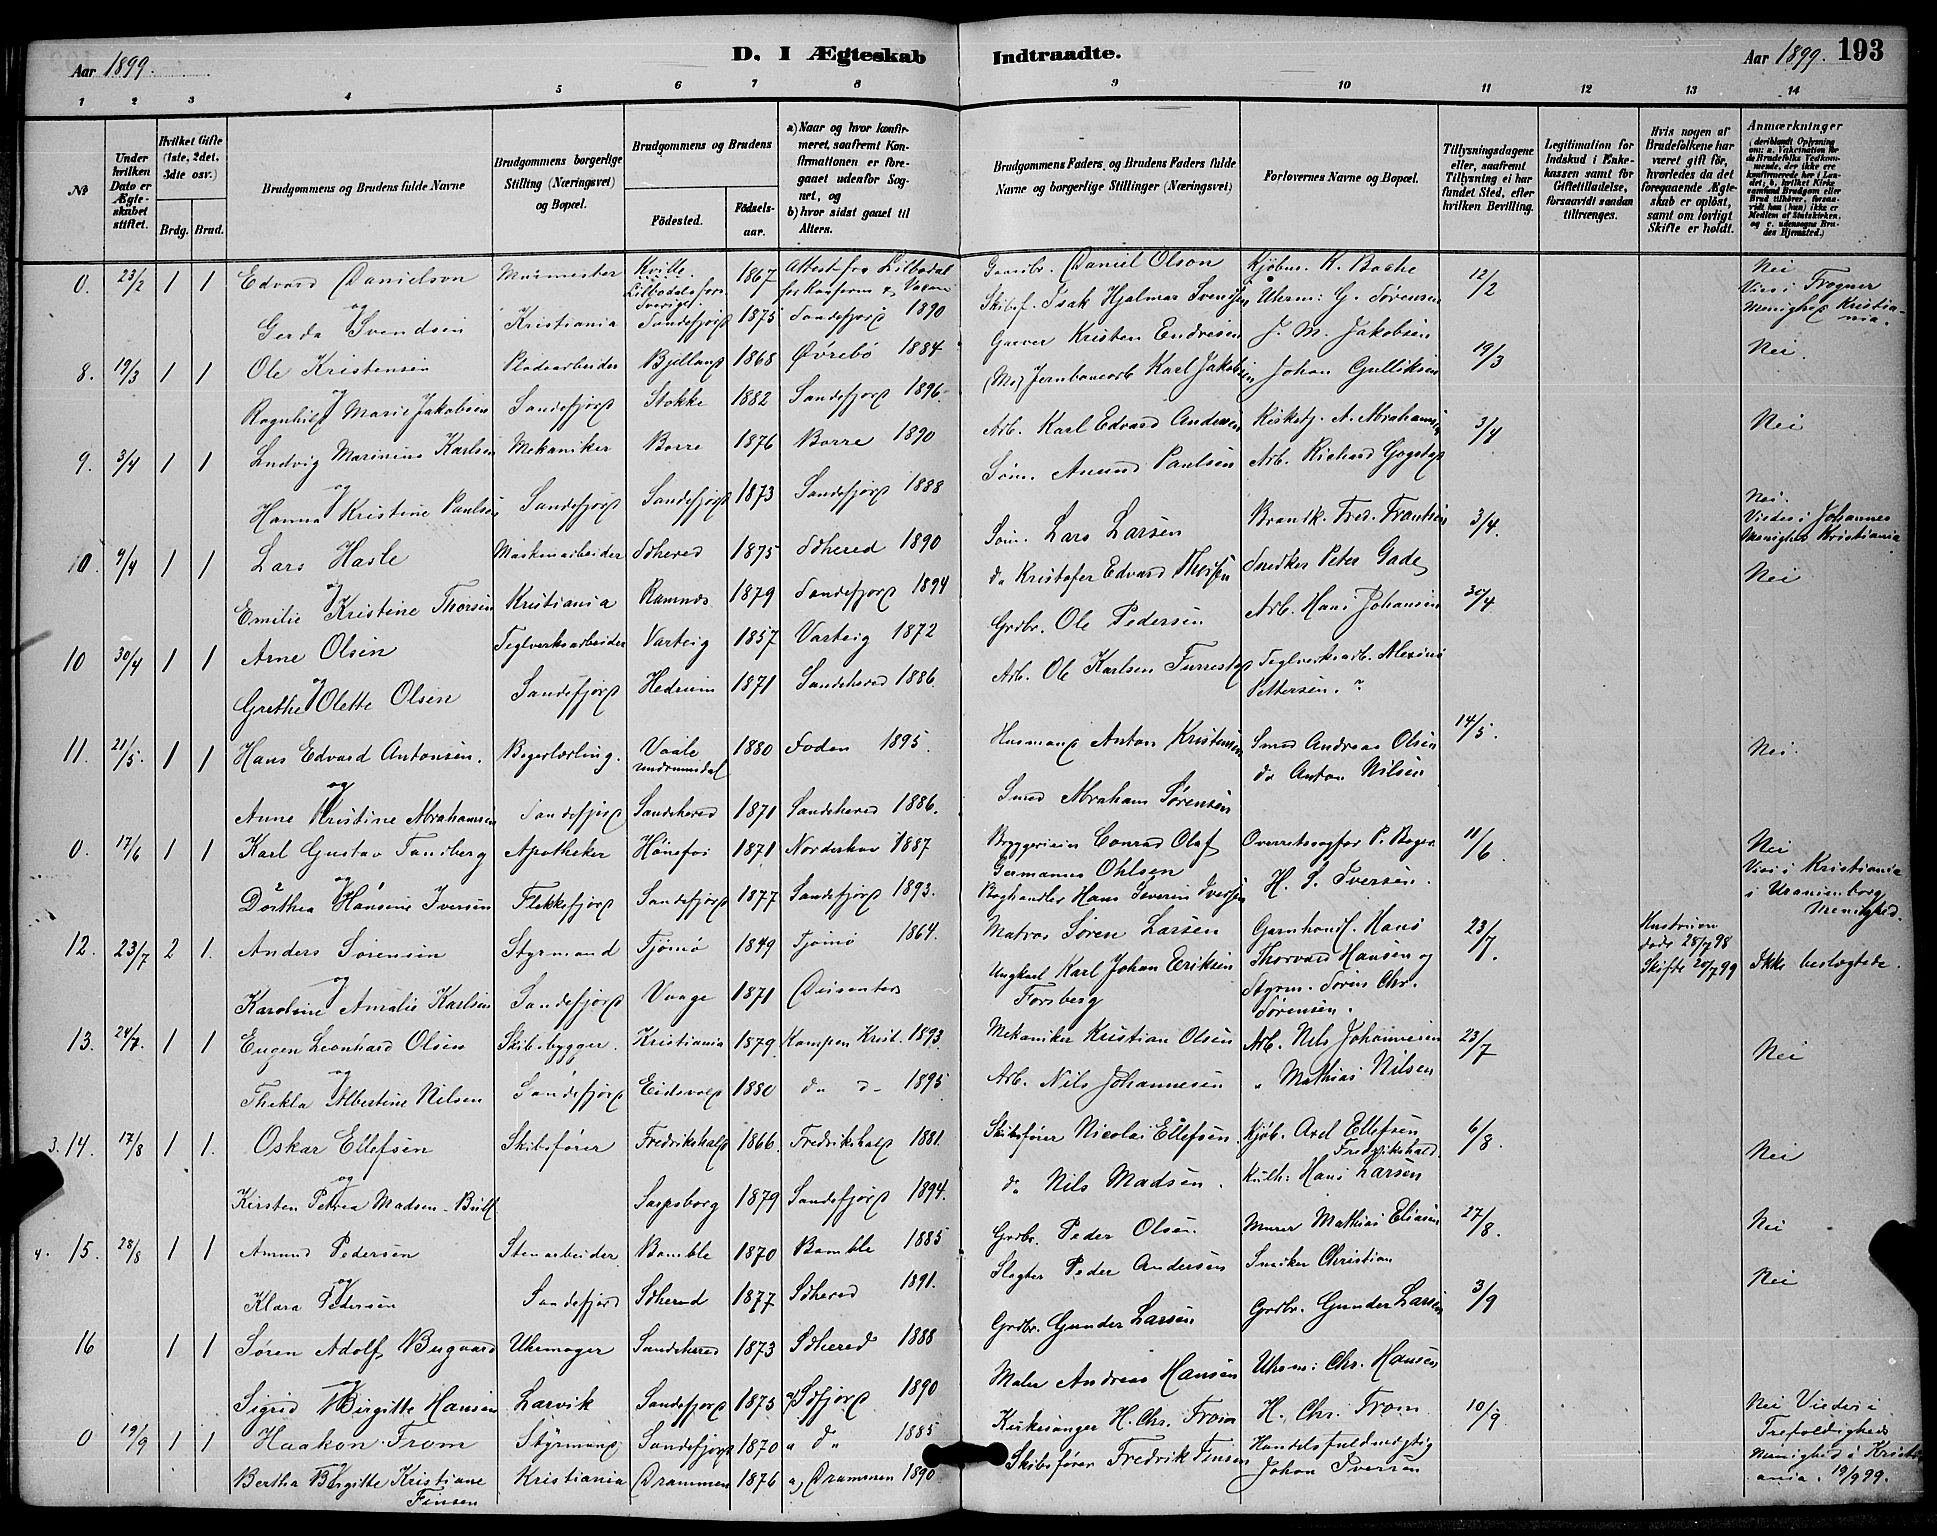 Aar 1899. D. I Ægteskab Indtraadte. Aar 1899. 193
1 2 3 4 5 6 7 8 9 10 11 12 13 14
No
Under hvilken Dato er Ægteskabet stiftet.
Hvilket Gifte (1ste, 2det, 3die osv.)
Brdg. Brud.
Brudgommens og Brudens fulde Navne
Brudgommens borgerlige Stilling (Næringsvei) og Bopæl.
Brudgommens og Brudens
Födested. Födselsaar.
a) Naar og hvor konfirmeret, saafremt Konfirmationen er foregaaet udenfor Sognet, og
b) hvor sidst gaaet til Alters.
Brudgommens Faders, og Brudens Faders fulde Navne og borgerlige Stillinger (Næringsvei)
Forlovernes Navne og Bopæl.
Tillysningsdagene eller, saafremt Tillysning ei har fundet Sted, efter hvilken Bevilling.
Legitimation for Indskud i Enkekassen samt for Giftetilladelse, forsaavidt saadan tiltrænges.
Hvis nogen af Brudefolkene har været gift før, hvorledes da det foregaaende Ægteskab er opløst, samt om lovligt Skifte er holdt.
Anmærkninger
0. 23/2 1 1 Edvard Danielson Murmester Kville. 1867 Attest fra Lilbodal Gaardbr. Daniel Olson Kjøbm. K. Bache 12/2 Nei
og Sverige for Konfirm & Vaccin Viet i Frogner
Gerda Svendsen Kristiania Sandefjord 1875 Sandefjord 1890 Skibsf. Isak Hjalmar Svendsen Uhrm: G. Sørensen Menighed Kristiania.
8. 19/3 1 1 Ole Kristensen Bjelland 1868 Øvrebö 1884 Garver Kristen Endresen J. M. Jakobsen 19/3 Nei.
Ragnhild Marie Jakobsen Sandefjord Stokke 1882 Sandefjord 1896 Jernbanearb Karl Jakobsen Johan Gulliksen
9. 3/4 1 1 Ludvig Marinius Karlsen Mekaniker Borre 1876 Borre 1890 Arb. Karl Edvard Andersen A. Abrahamsen 3/4 Nei
og
Hanna Kristine Paulsen Sandefjord Sandefjord 1873 Sandefjord 1888 Söm. Amund Paulsen Arb. Richard Gogstad
10. 9/4 1 1 Lars Hasle Maskinarbeider Sdhered 1875 Sdhered 1890 Söm. Lars Larsen Brandk. Fred. Frantsen 3/4. Nei. Viedes i Johannes Menighed Kristiania
og
Emilie Kristine Thorsen Kristiania Ramnes 1879 Sandefjord 1894 do Kristofer Edvard Thorsen Snedker Peter Gade
10 30/4 1 1 Arne Olsen Teglverksarbeider Varteig 1857 Varteig 1872 Grdbr. Ole Pedersen Arb. Hans Johansen 30/4 Nei
og
Grethe Olette Olsen Sandefjord Hedrum 1871 Sandehered 1886. Arb. Ole Karlsen Furrestad Teglverksarb. Pettersen.
11. 21/5. 1 1 Hans Edvard Antonsen. Bagerlærling. Vaale Undrumsdal 1880 Foden 1895. Husmand Anton Kristensen Smed Andreas Olsen 14/5. Nei.
og do Anton Nilsen
Anne Kristine Abrahamsen Sandefjord Sandehered 1871 Sandehered 1886. Smed Abraham Sørensen
0. 17/6 1 1 Karl Gustav Tandberg Apotheker Hönefos 1871 Norderhov 1887 Conrad Olaf Germannus Ohlsen Overretssagfør P. Bogen 11/6. Nei Viet i Kristiania i Uranienborg Menighed.
og
Dorthea Hansine Iversen Flekkefjord Sandefjord 1877 Sandefjord 1893. Boghandler Hans Severin Iversen H. S. Iversen.
12. 23/7 2 1. Anders Sørensen Styrmand Tjömö 1849 Tjömö 1864. Matros Sören Larsen Garnhandl. Hans Thorvald Hansen og 23/7. Hustruen døde 28/7 98 Skifte 20/7 99 Ikke beslægtede.
og
Karoline Amalie Karlsen Sandefjord Vaage 1871 Dissenter Ungkarl Karl Johan Eriksen Forsberg Styrm. Sören Chr. Sørensen.
13. 24/7. 1 1 Eugen Leonhard Olsen Skibsbygger. Kristiania 1879. Kampen Krist. 1893. Mekaniker Kristian Olsen Arb. Nils Johannesen 23/7 Nei
og
Thekla Albertine Nilsen Sandefjord Eidsvold 1880 do do 1895 Arb. Nils Johannesen " Mathias Nilsen
3. 14. 17/8 1 1. Oskar Ellefsen Skibsfører Fredrikshald 1866. Fredrikshald 1881. Skibsfører Nicolai Ellefsen. Kjøb. Axel Ellefsen Fredrikshald. 6/8 Nei
og
Kirsten Petrea Madsen-Bull Sarpsborg 1879 Sandefjord 1894. do Nils Madsen. Kulh: Hans Larsen
4. 15. 28/8 1 1 Amund Pedersen Stenarbeider Bamble 1870 Bamble 1885 Grdbr. Peder Olsen. Murer Mathias Eliasen 27/8. Nei
og
Klara Pedersen Sandefjord Sdhered 1877 Sdhered 1891. Slagter Peder Andersen Snedker Christian
16 1 1 Søren Adolf Bugaard Uhrmager Sandehered 1873 Sdhered 1888 Grdbr. Gunder Larsen Grdbr. Gunder Larsen 3/9 Nei
og
Sigrid Birgitte Hansen Larvik Sandefjord 1873 a) Sdfjord 1890 Maler Andreas Hansen Uhrm: Chr. Hansen
0 19/9 1 1 Haakon From Styrmand Sandefjord 1870 a do 1885 Kirkesanger H. Chr. From H. Chr. From 10/9 Nei Viedes i Trefoldigheds
Bertha Birgitte Kristiane Finsen Kristiania Drammen 1876 a) Drammen 1890. Skibsfører Fredrik Finsen Handelsfuldmegtig Johan Iversen Menighed i Kristiania. 19/9 99.